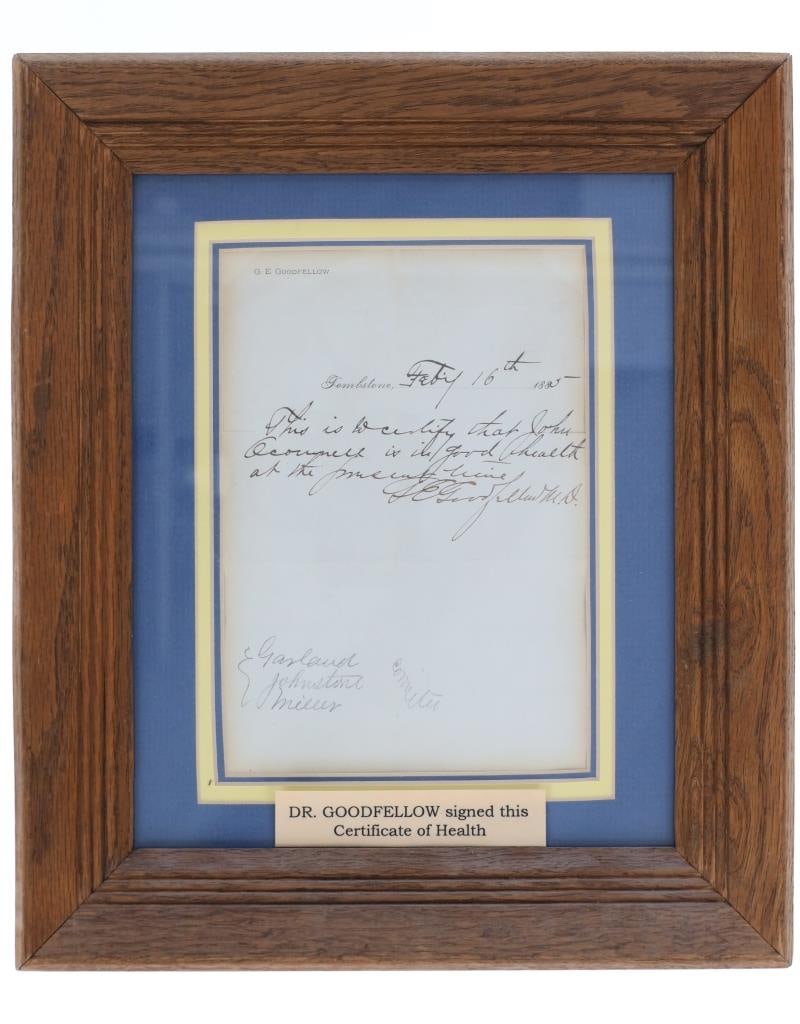 G. E. GOODFELLOW
Tombstone, Feb'y 16th 1885
This is to certify that John
Oconnell is in good health
at the present time
G E Goodfellow M.D.
Garland
Johnstone
Miller
comittee
DR. GOODFELLOW signed this
Certificate of Health